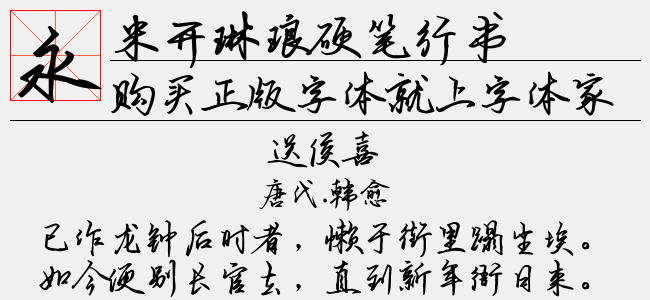 永
米开琳琅硬笔行书
购买正版字体就上字体家
送侯喜
唐代.韩愈
已作龙钟后时者，懒于街里蹋尘埃。
如今便别长官去，直到新年衙日来。